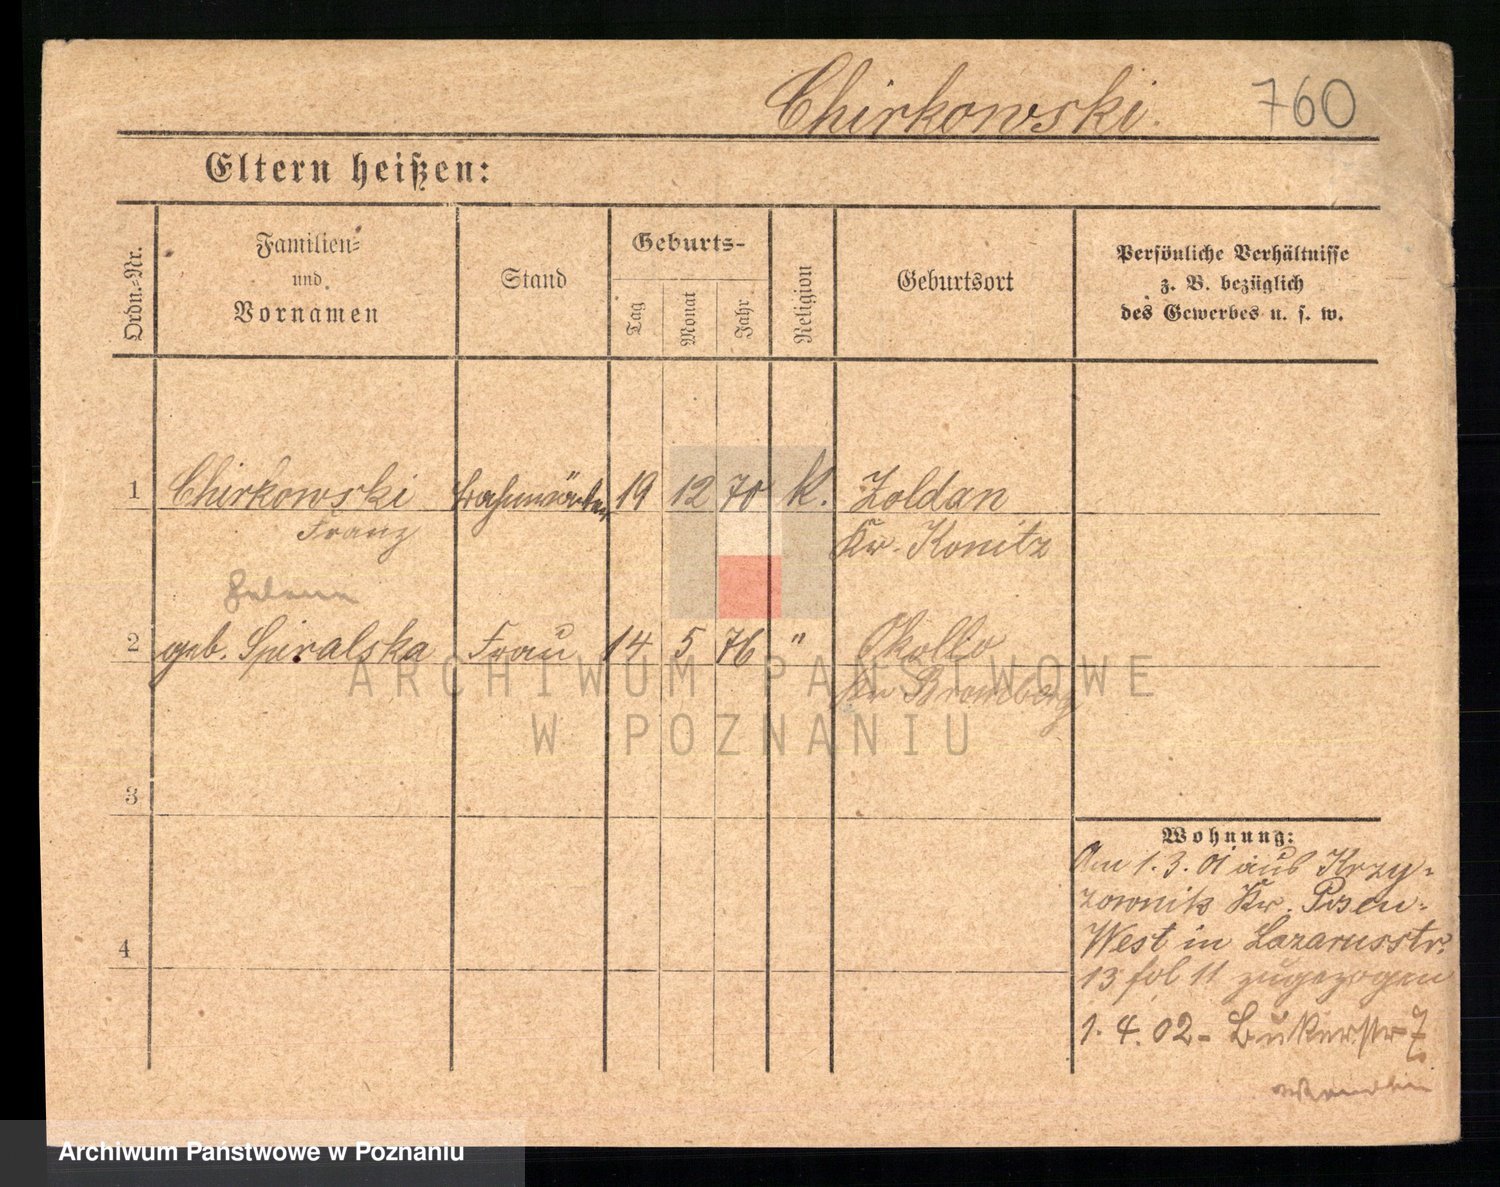 Chirkowski. 760
Eltern heißen:
Ordn.-Nr.
Familien-
und
Vornamen
Stand
Geburts-
Tag
Monat
Jahr
Religion
Geburtsort
Persönliche Verhältnisse
z. B. bezüglich
des Gewerbes u. s. w.
1 Chirkowski Bahnwärter 19 12 70 K. Zoldan
Franz Kr. Konitz
Helene
2 geb. Spiralska Frau 14 5 76 " Okollo
Kr Bromberg
3
4
Wohnung:
Am 1.3.01 aus Krzy-
zownik Kr. Posen-
West in Lazarusstr.
13 fol 11 zugezogen
1.4.02- Bukerstr 7
ARCHIWUM PAŃSTWOWE
W POZNANIU
Archiwum Państwowe w Poznaniu